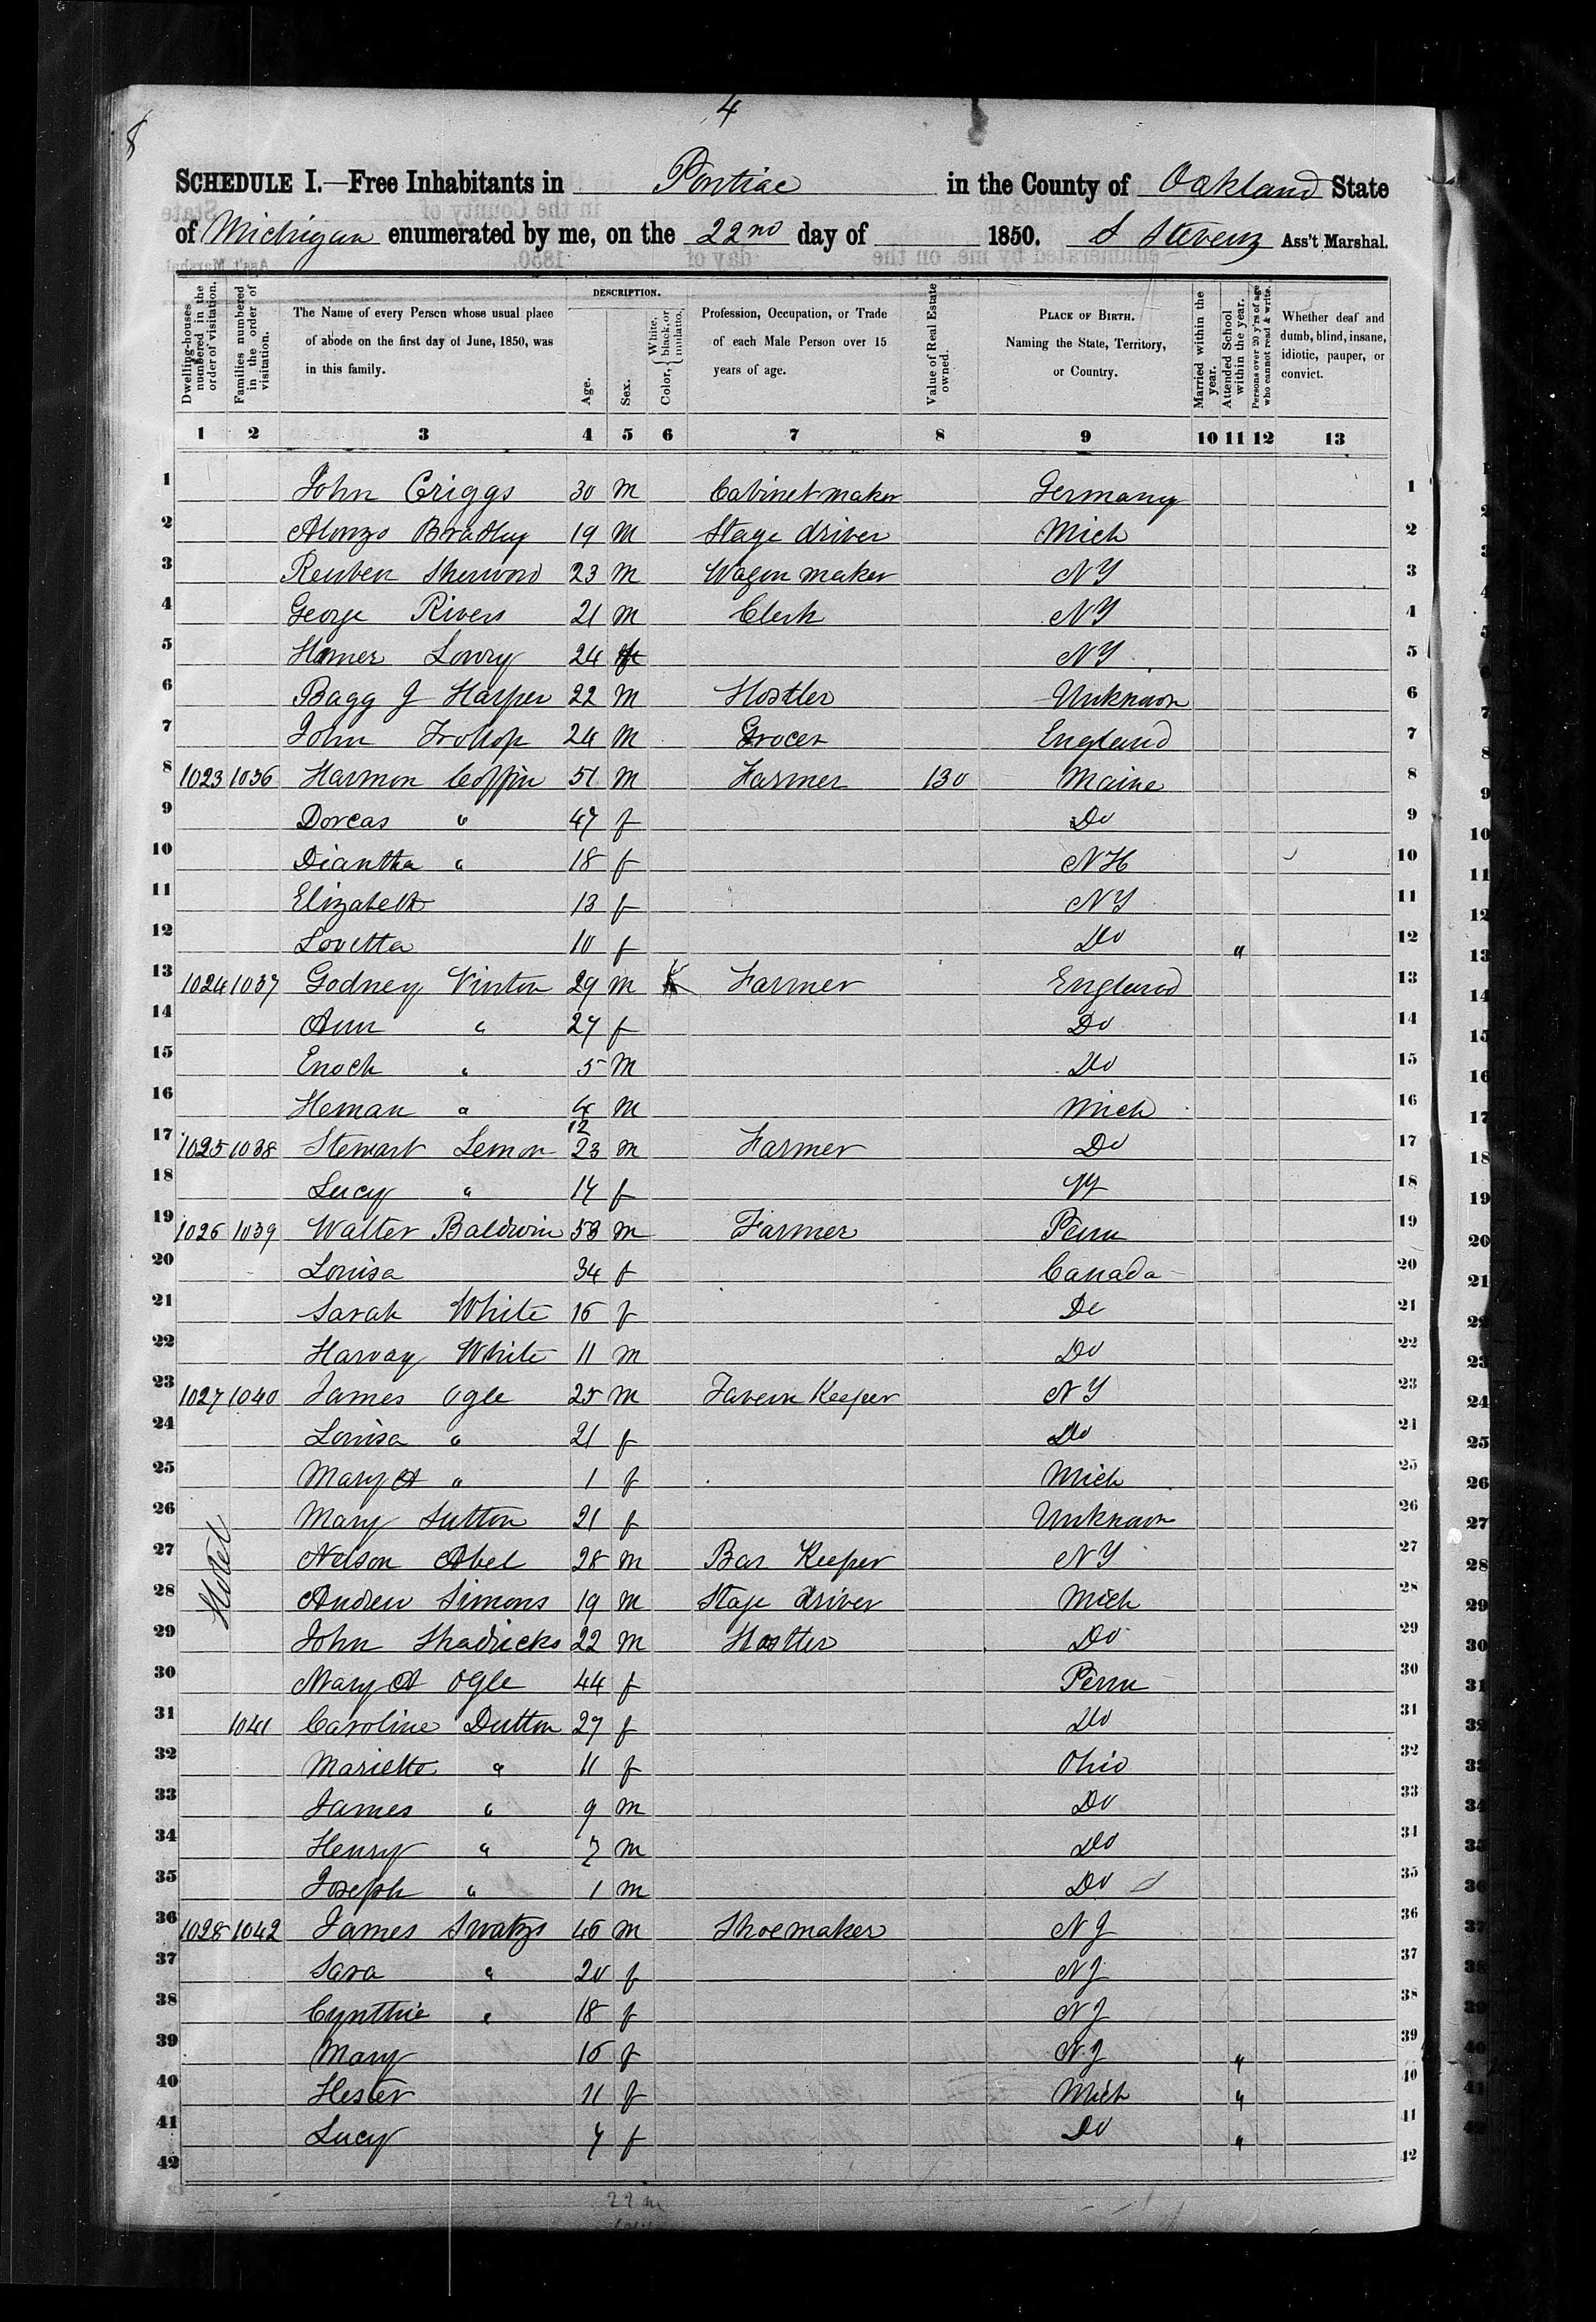 4
8
SCHEDULE I.—Free Inhabitants in Pontiac in the County of Oakland State
of Michigan enumerated by me, on the 22nd day of 1850. S Stevens Ass't Marshal.
Dwelling-houses numbered in the order of visitation.
Families numbered in the order of visitation.
The Name of every Person whose usual place of abode on the first day of June, 1850, was in this family.
DESCRIPTION.
Age.
Sex.
Color, { White, black, or mulatto.
Profession, Occupation, or Trade of each Male Person over 15 years of age.
Value of Real Estate owned.
PLACE OF BIRTH. Naming the State, Territory, or Country.
Married within the year.
Attended School within the year.
Persons over 20 y'rs of age who cannot read & write.
Whether deaf and dumb, blind, insane, idiotic, pauper, or convict.
1 2 3 4 5 6 7 8 9 10 11 12 13
1 John Griggs 30 M Cabinet maker Germany 1
2 Alonzo Bradley 19 M Stage driver Mich 2
3 Reuben Sherwood 23 M Wagon maker NY 3
4 George Rivers 21 M Clerk NY 4
5 Homer Lowry 24 NY 5
6 Bagg J Harper 22 M Hostler Unknown 6
7 John Trollop 24 M Grocer England 7
8 1023 1036 Harmon Coffin 51 M Farmer 130 Maine 8
9 Dorcas " 47 f Do 9
10 Diantha " 18 f NH 10
11 Elizabeth 13 f NY 11
12 Lovetta 10 f Do " 12
13 1024 1037 Godney Vinton 29 M Farmer England 13
14 Ann " 27 f Do 14
15 Enoch " 5 M Do 15
16 Heman " 4/12 M Mich 16
17 1025 1038 Stewart Lemon 23 M Farmer Do 17
18 Lucy " 17 f 18
19 1026 1039 Walter Baldwin 53 M Farmer Penn 19
20 Louisa 34 f Canada 20
21 Sarah White 16 f Do 21
22 Harvay White 11 M Do 22
23 1027 1040 James Ogle 25 M Tavern Keeper NY 23
24 Louisa " 21 f Do 24
25 Mary A " 1 f Mich 25
26 Mary Sutton 21 f Unknown 26
Hotel
27 Nelson Abel 28 M Bar Keeper NY 27
28 Andrew Simons 19 M Stage driver Mich 28
29 John Shadricks 22 M Hostler Do 29
30 Mary A Ogle 44 f Penn 30
31 1041 Caroline Dutton 27 f Do 31
32 Mariette " 11 f Ohio 32
33 James " 9 M Do 33
34 Henry " 7 M Do 34
35 Joseph " 1 M Do 35
36 1028 1042 James Swatzs 46 M Shoemaker NJ 36
37 Sara " 20 f NJ 37
38 Cynthie " 18 f NJ 38
39 Mary 16 f NJ " 39
40 Hester 11 f Mich " 40
41 Lucy 7 f Do " 41
42 42
22 m